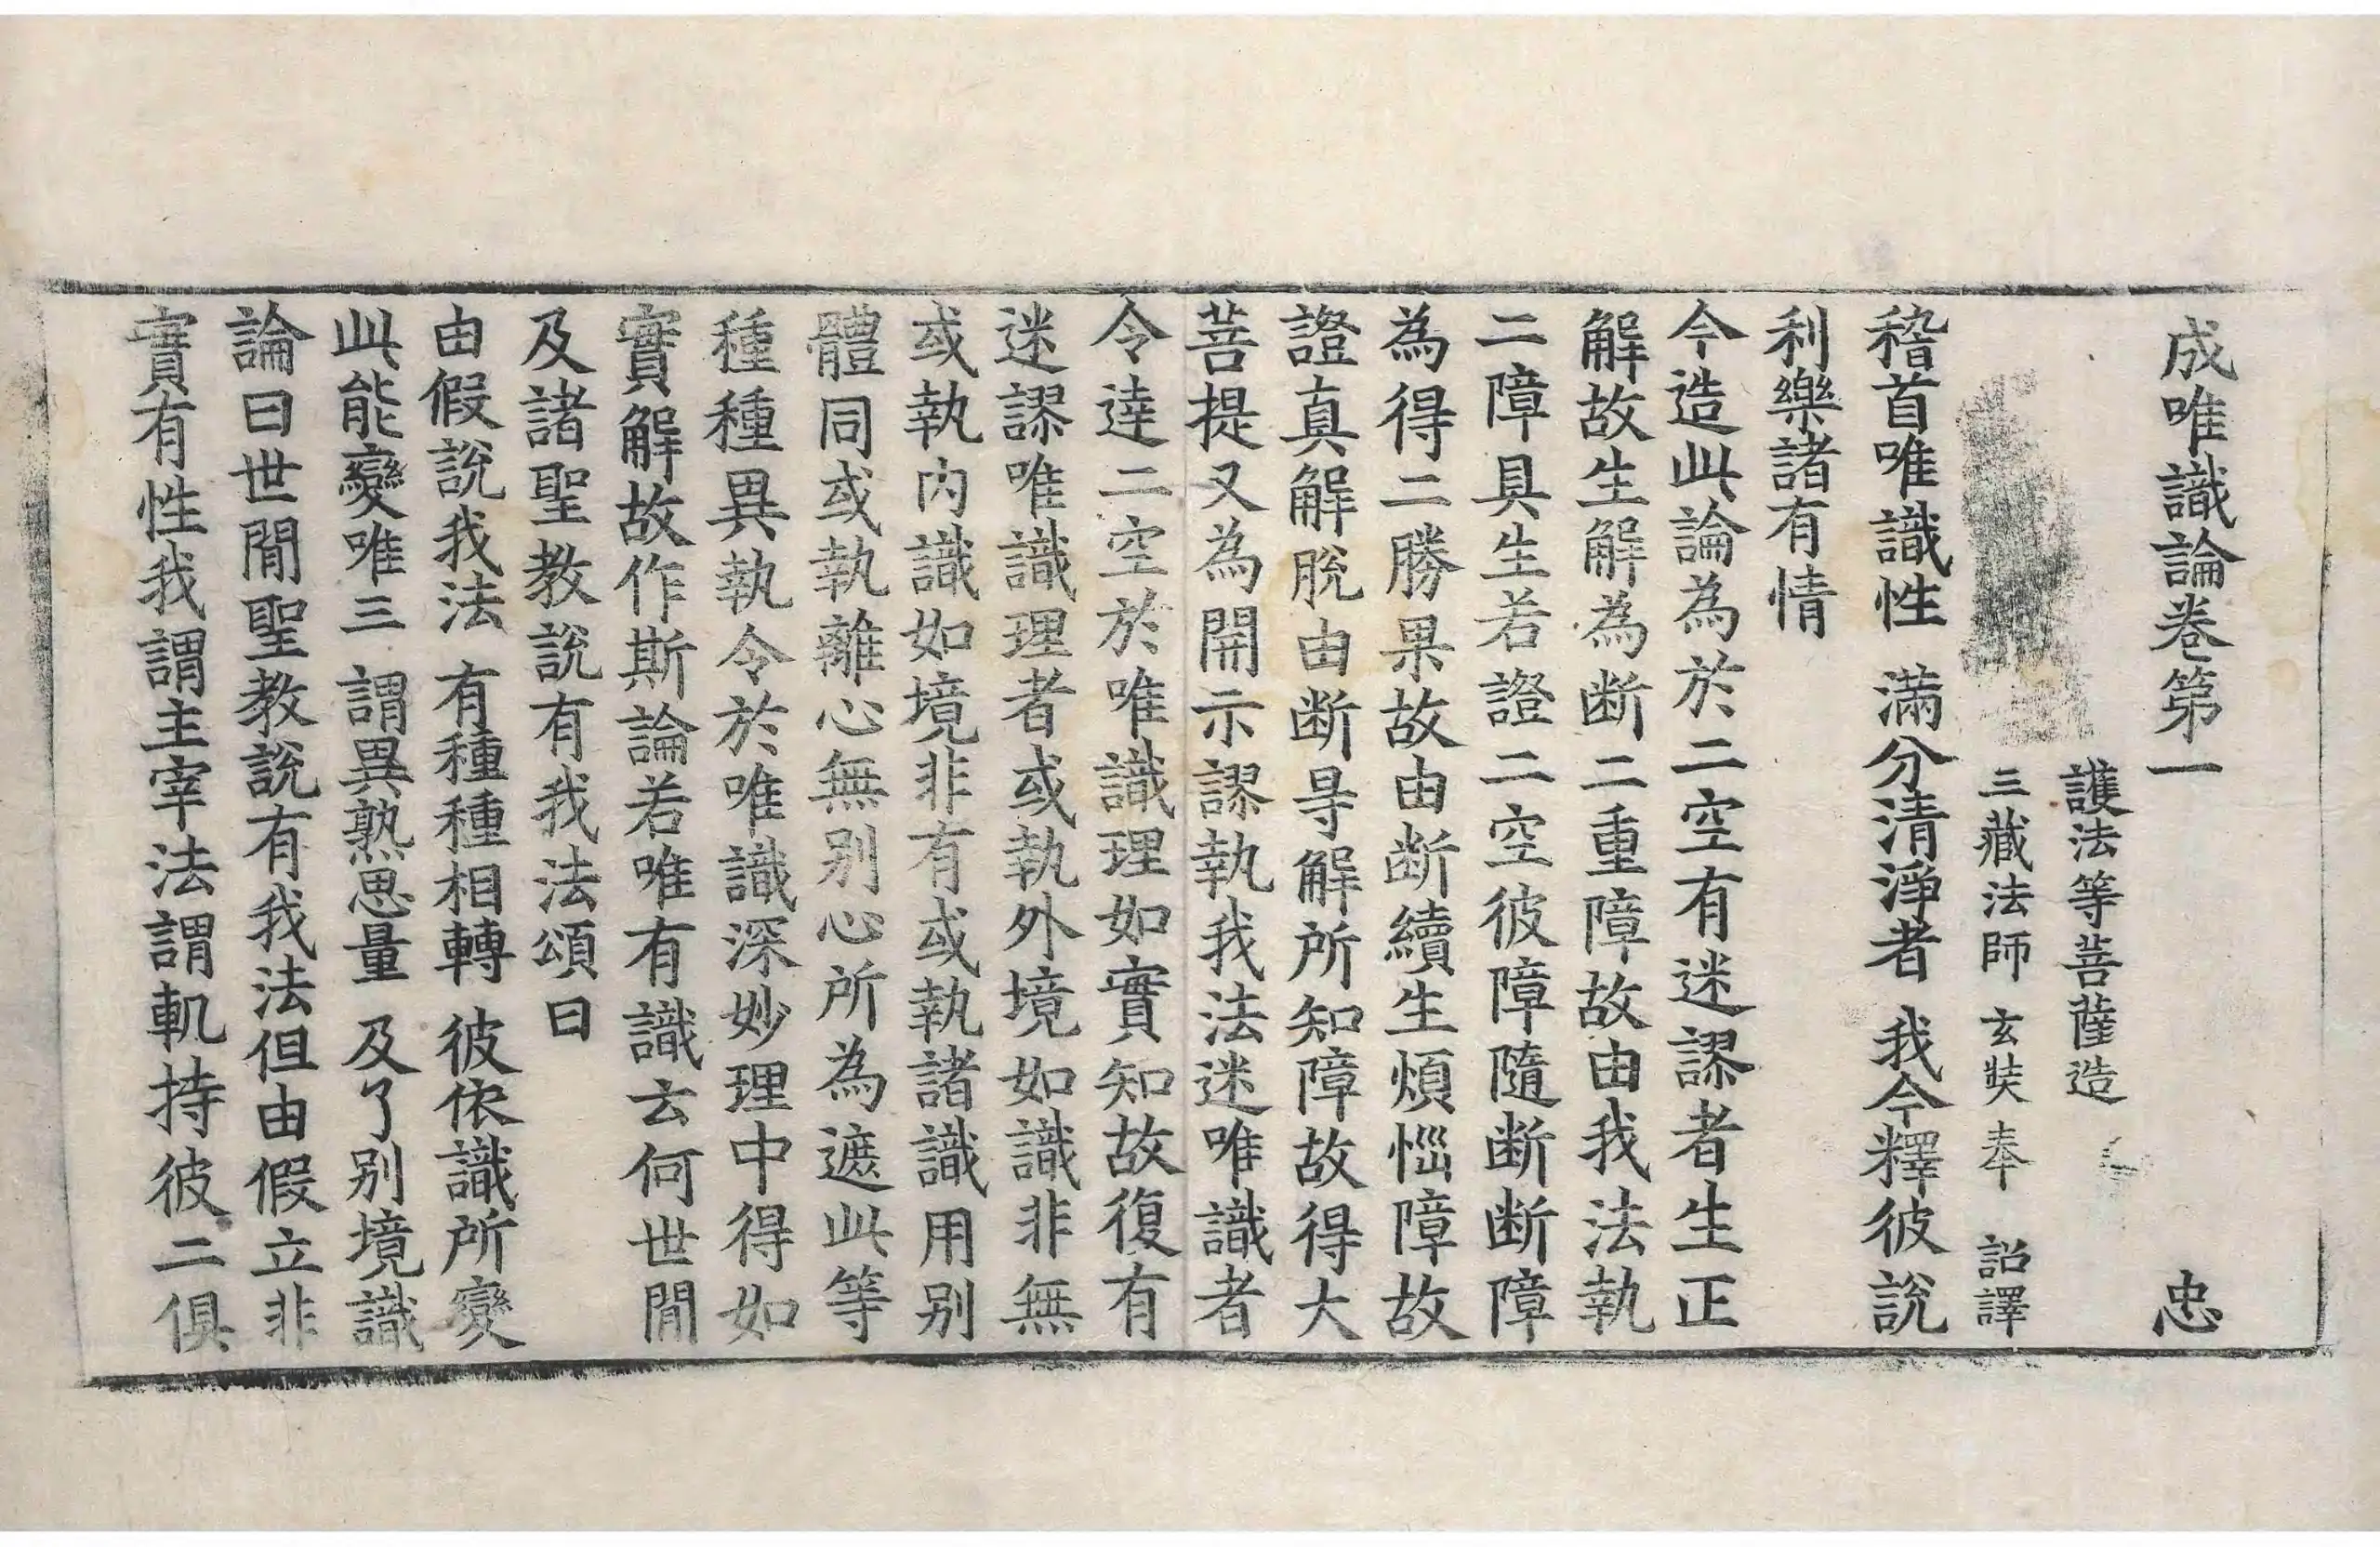 成唯識論卷第一 忠
護法等菩薩造
三藏法師玄奘奉 詔譯
稽首唯識性 滿分清淨者 我今釋彼說
利樂諸有情
今造此論為於二空有迷謬者生正
解故生解為断二重障故由我法執
二障具生若證二空彼障隨断断障
為得二勝果故由断續生煩惱障故
證真解脫由断㝵解所知障故得大
菩提又為開示謬執我法迷唯識者
令達二空於唯識理如實知故復有
迷謬唯識理者或執外境如識非無
或執內識如境非有或執諸識用别
體同或執離心無别心所為遮此等
種種異執令於唯識深妙理中得如
實解故作斯論若唯有識云何世間
及諸聖教說有我法頌曰
由假說我法 有種種相轉 彼依識所變
此能變唯三 謂異熟思量 及了别境識
論曰世間聖教說有我法但由假立非
實有性我謂主宰法謂軌持彼二俱